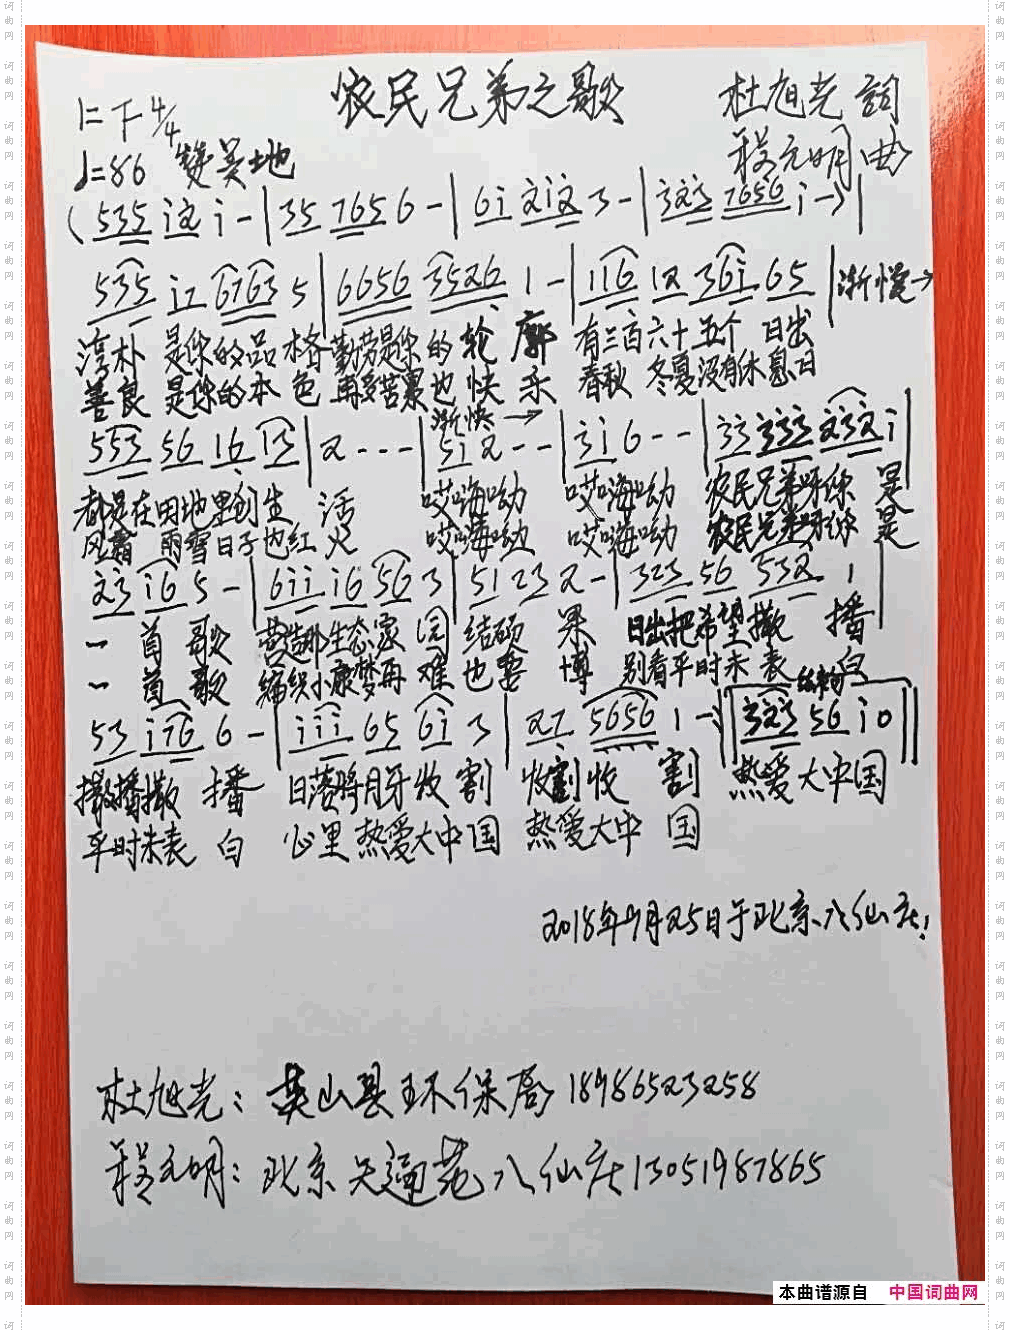 农民兄弟之歌
杜旭光 詞
1=F 4/4
程元明 曲
♩=86 赞美地
(535 i2 i-|35 7656-|6i 2i2 3-|323 7656 i-)|
535 i7 6763 5|6656 3526 1-|116 12 36i 65|渐慢→
淳朴 是你的品 格 勤劳是你的 轮 廓 有三百六十五个 日出
善良 是你的本 色 再多苦累也 快 乐 春秋 冬夏没有休息日
渐快→
553 56 16 13|2---|5i 2--|3i 6--|33 333 232 i|
都是在田地里创生 活 哎嗨呦 哎嗨呦 农民兄弟呀你 是
风霜 雨雪日子也红 火 哎嗨呦 哎嗨呦 农民兄弟呀你 是
23 i6 5-|6ii i6 56 3|51 23 2-|323 56 532 1|
一 首 歌 营造那生态家 园 结硕 果 日出把希望撒 播
一 首 歌 编织小康梦再 难 也要 博 别看平时未 表 白
结束句
53 i76 6-|iii 65 6i 3|27 5656 1-|323 56 i0||
撒播撒 播 日落将月牙收 割 收割收 割 热爱大中国
平时未表 白 心里热爱大中国 热爱大中 国
2018年9月25日于北京八仙庄!
杜旭光: 英山县环保局 18986523258
程元明: 北京天通苑八仙庄13051987865
本曲谱源自 中国词曲网